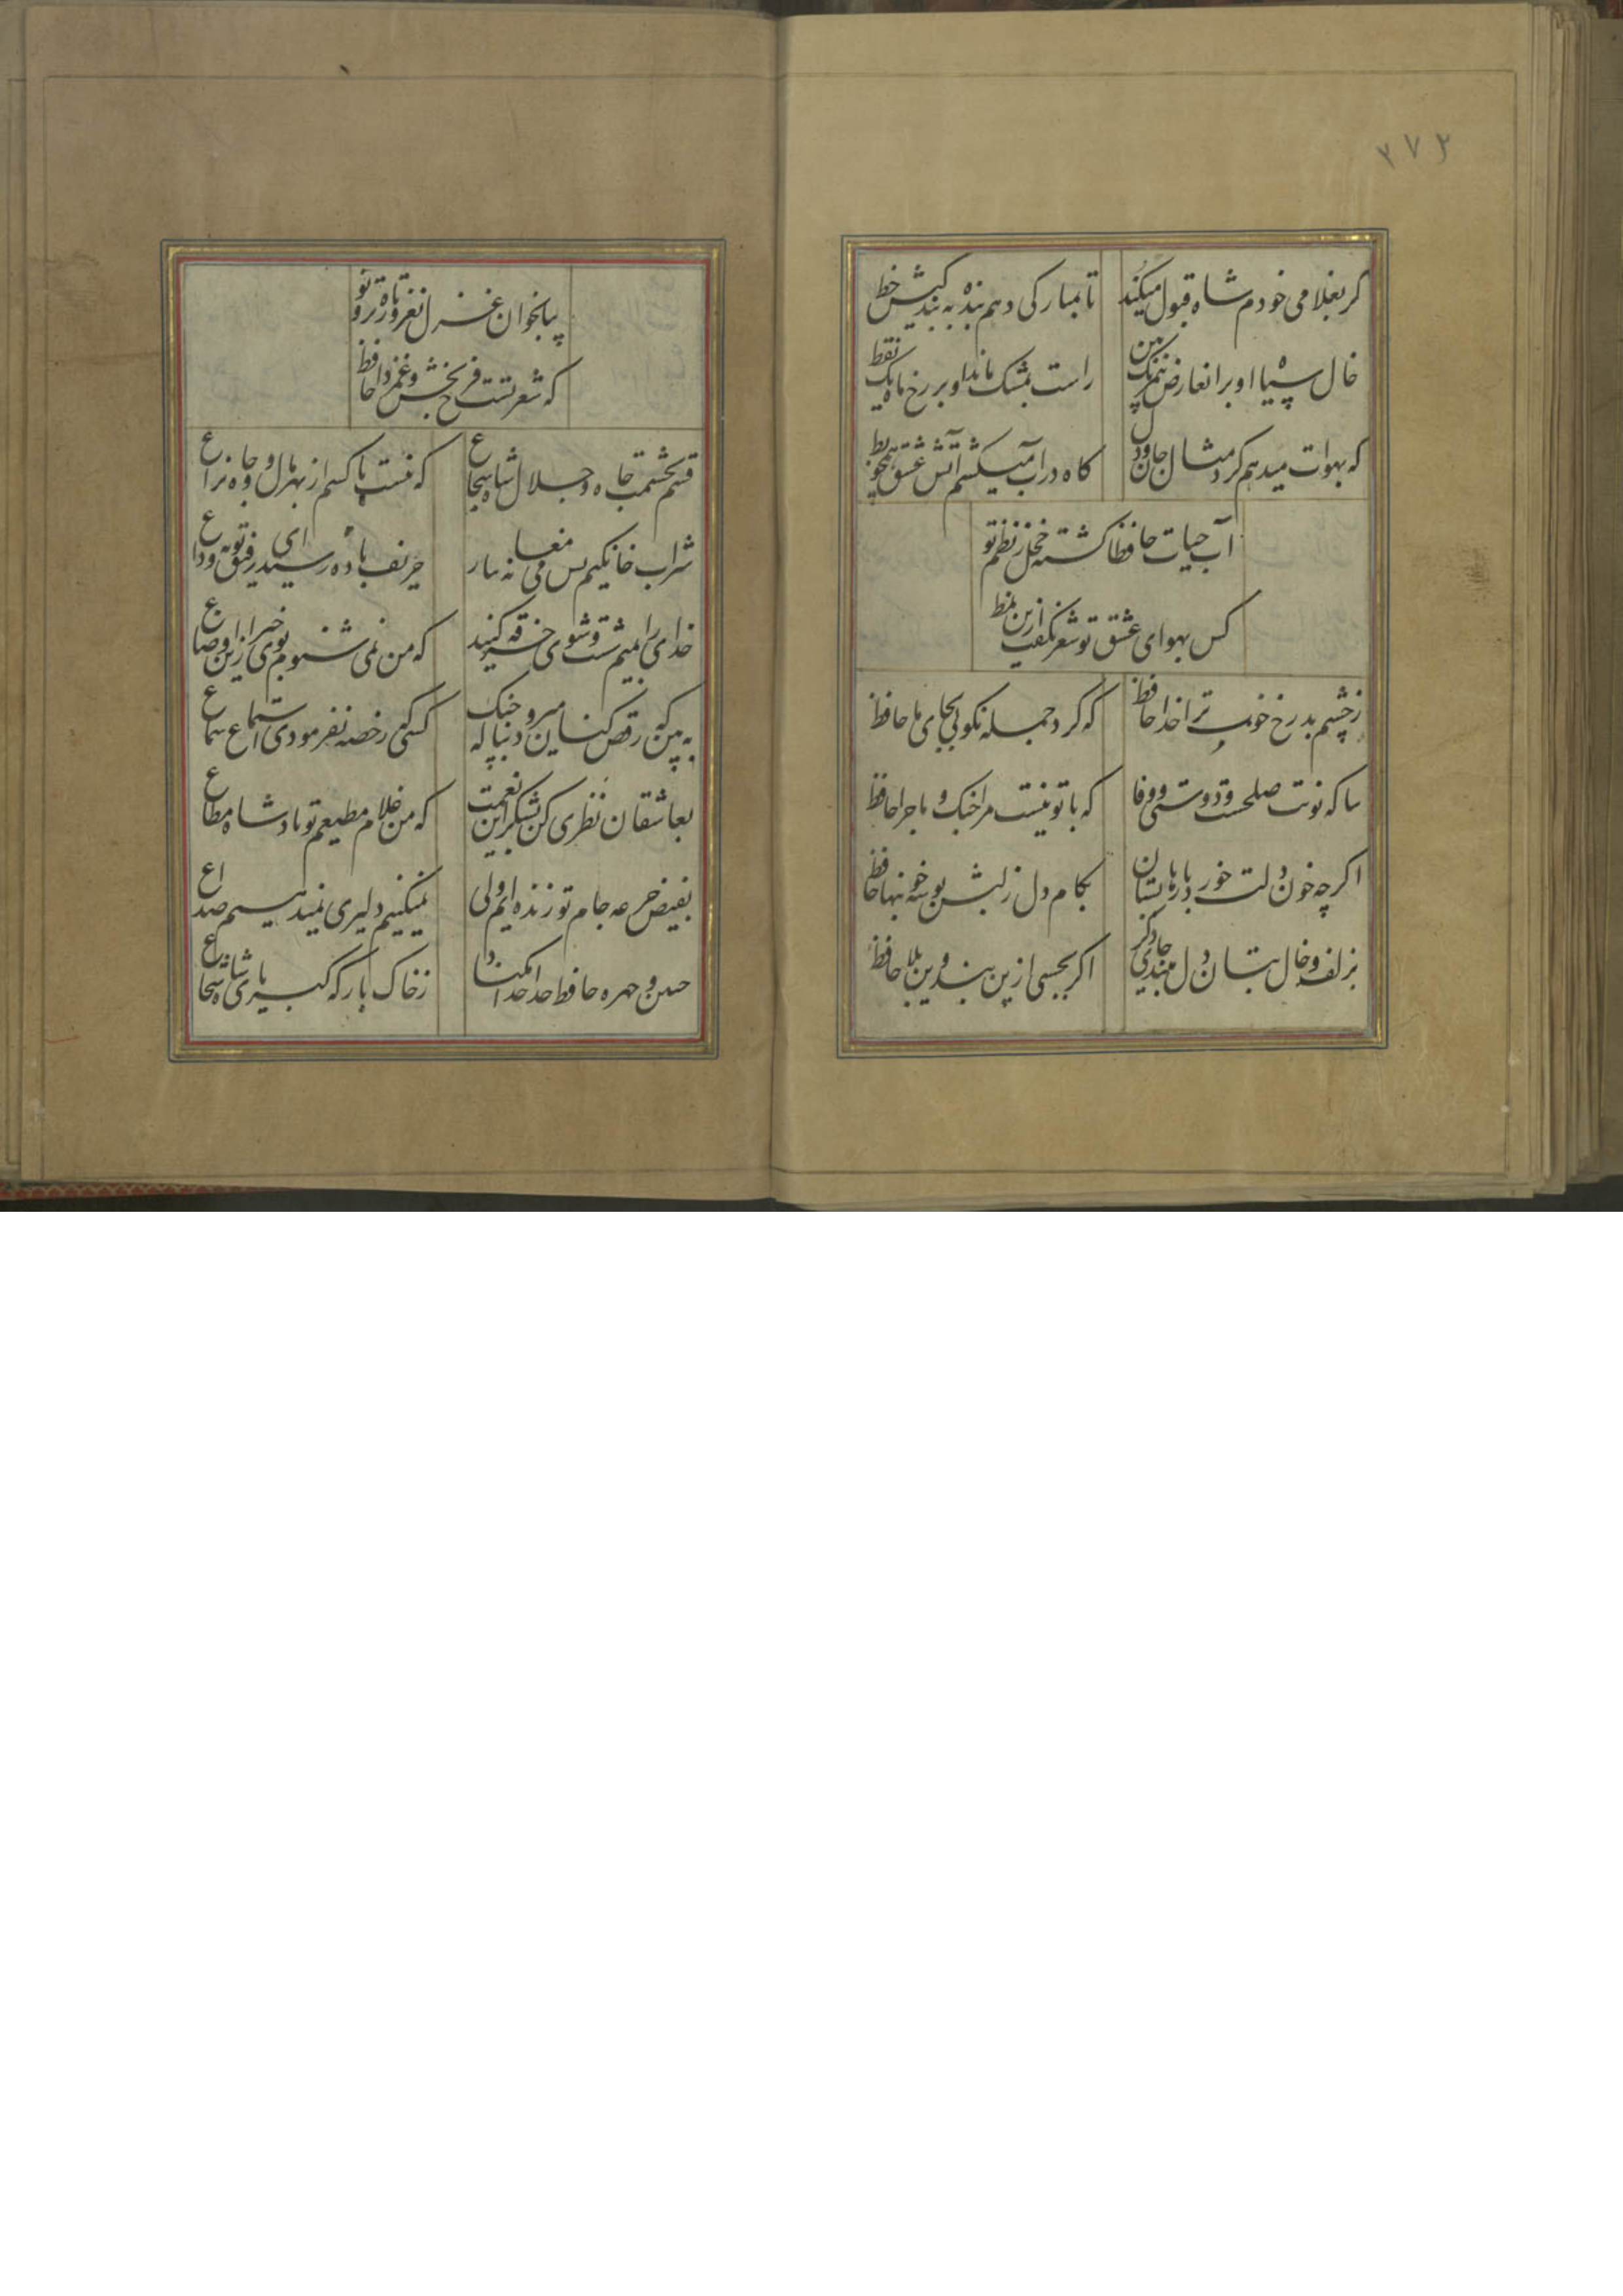 ۲۷۳
کر بغلامی خودم شاه قبول میکند
تا بمبارکی دهم بنده به بندکیش خط
خال سیاه او بران عارض سیمرنک بین
راست بمشک ماند او بر رخ ماه یک نقط
که بهوات میدهم کرد مثال جان و دل
کاه در آب میکشم آتش عشق همچو بط
آب حیات حافظا کشته خجل ز نظم تو
کس بهوای عشق تو شعر نکفت ازین نمط
ز چشم بد رخ خوب ترا خدا حافظ
که کرد جمله نکویی بجای ما حافظ
بیا که نوبت صلحست و دوستی و وفا
که با تو نیست مرا جنک و ماجرا حافظ
اکرچه خون دلت خورد
بکام دل ز لبش بوسه خونبها حافظ
بزلف و خال بتان دل مبند دیکر
اکر بجستی ازین بند و این بلا حافظ
بیا بخوان غزل نغز و تازه و تر تو
که شعر تست فرح بخش و غمزدا حافظ
قسم بحشمت و جاه و جلال شاه شجاع
که نیست با کسم از بهر مال و جاه نزاع
شراب خانکیم بس می مغانه بیار
حریف باده رسید ای رفیق توبه وداع
خدای را بمیم شست و شوی خرقه کنید
که من نمی شنوم بوی خیر ازین اوضاع
به بین که رقص کنان میرود
کسی که رخصه نفرمودی استماع سماع
بعاشقان نظری کن بشکر این نعمت
که من غلام مطیعم تو پادشاه مطاع
بفیض جرعه جام تو زنده ایم ولی
نمیکنیم دلیری نمیدهیم صداع
جبین و چهره حافظ خدا جدا مکناد
ز خاک بارکه کبریای شاه شجاع